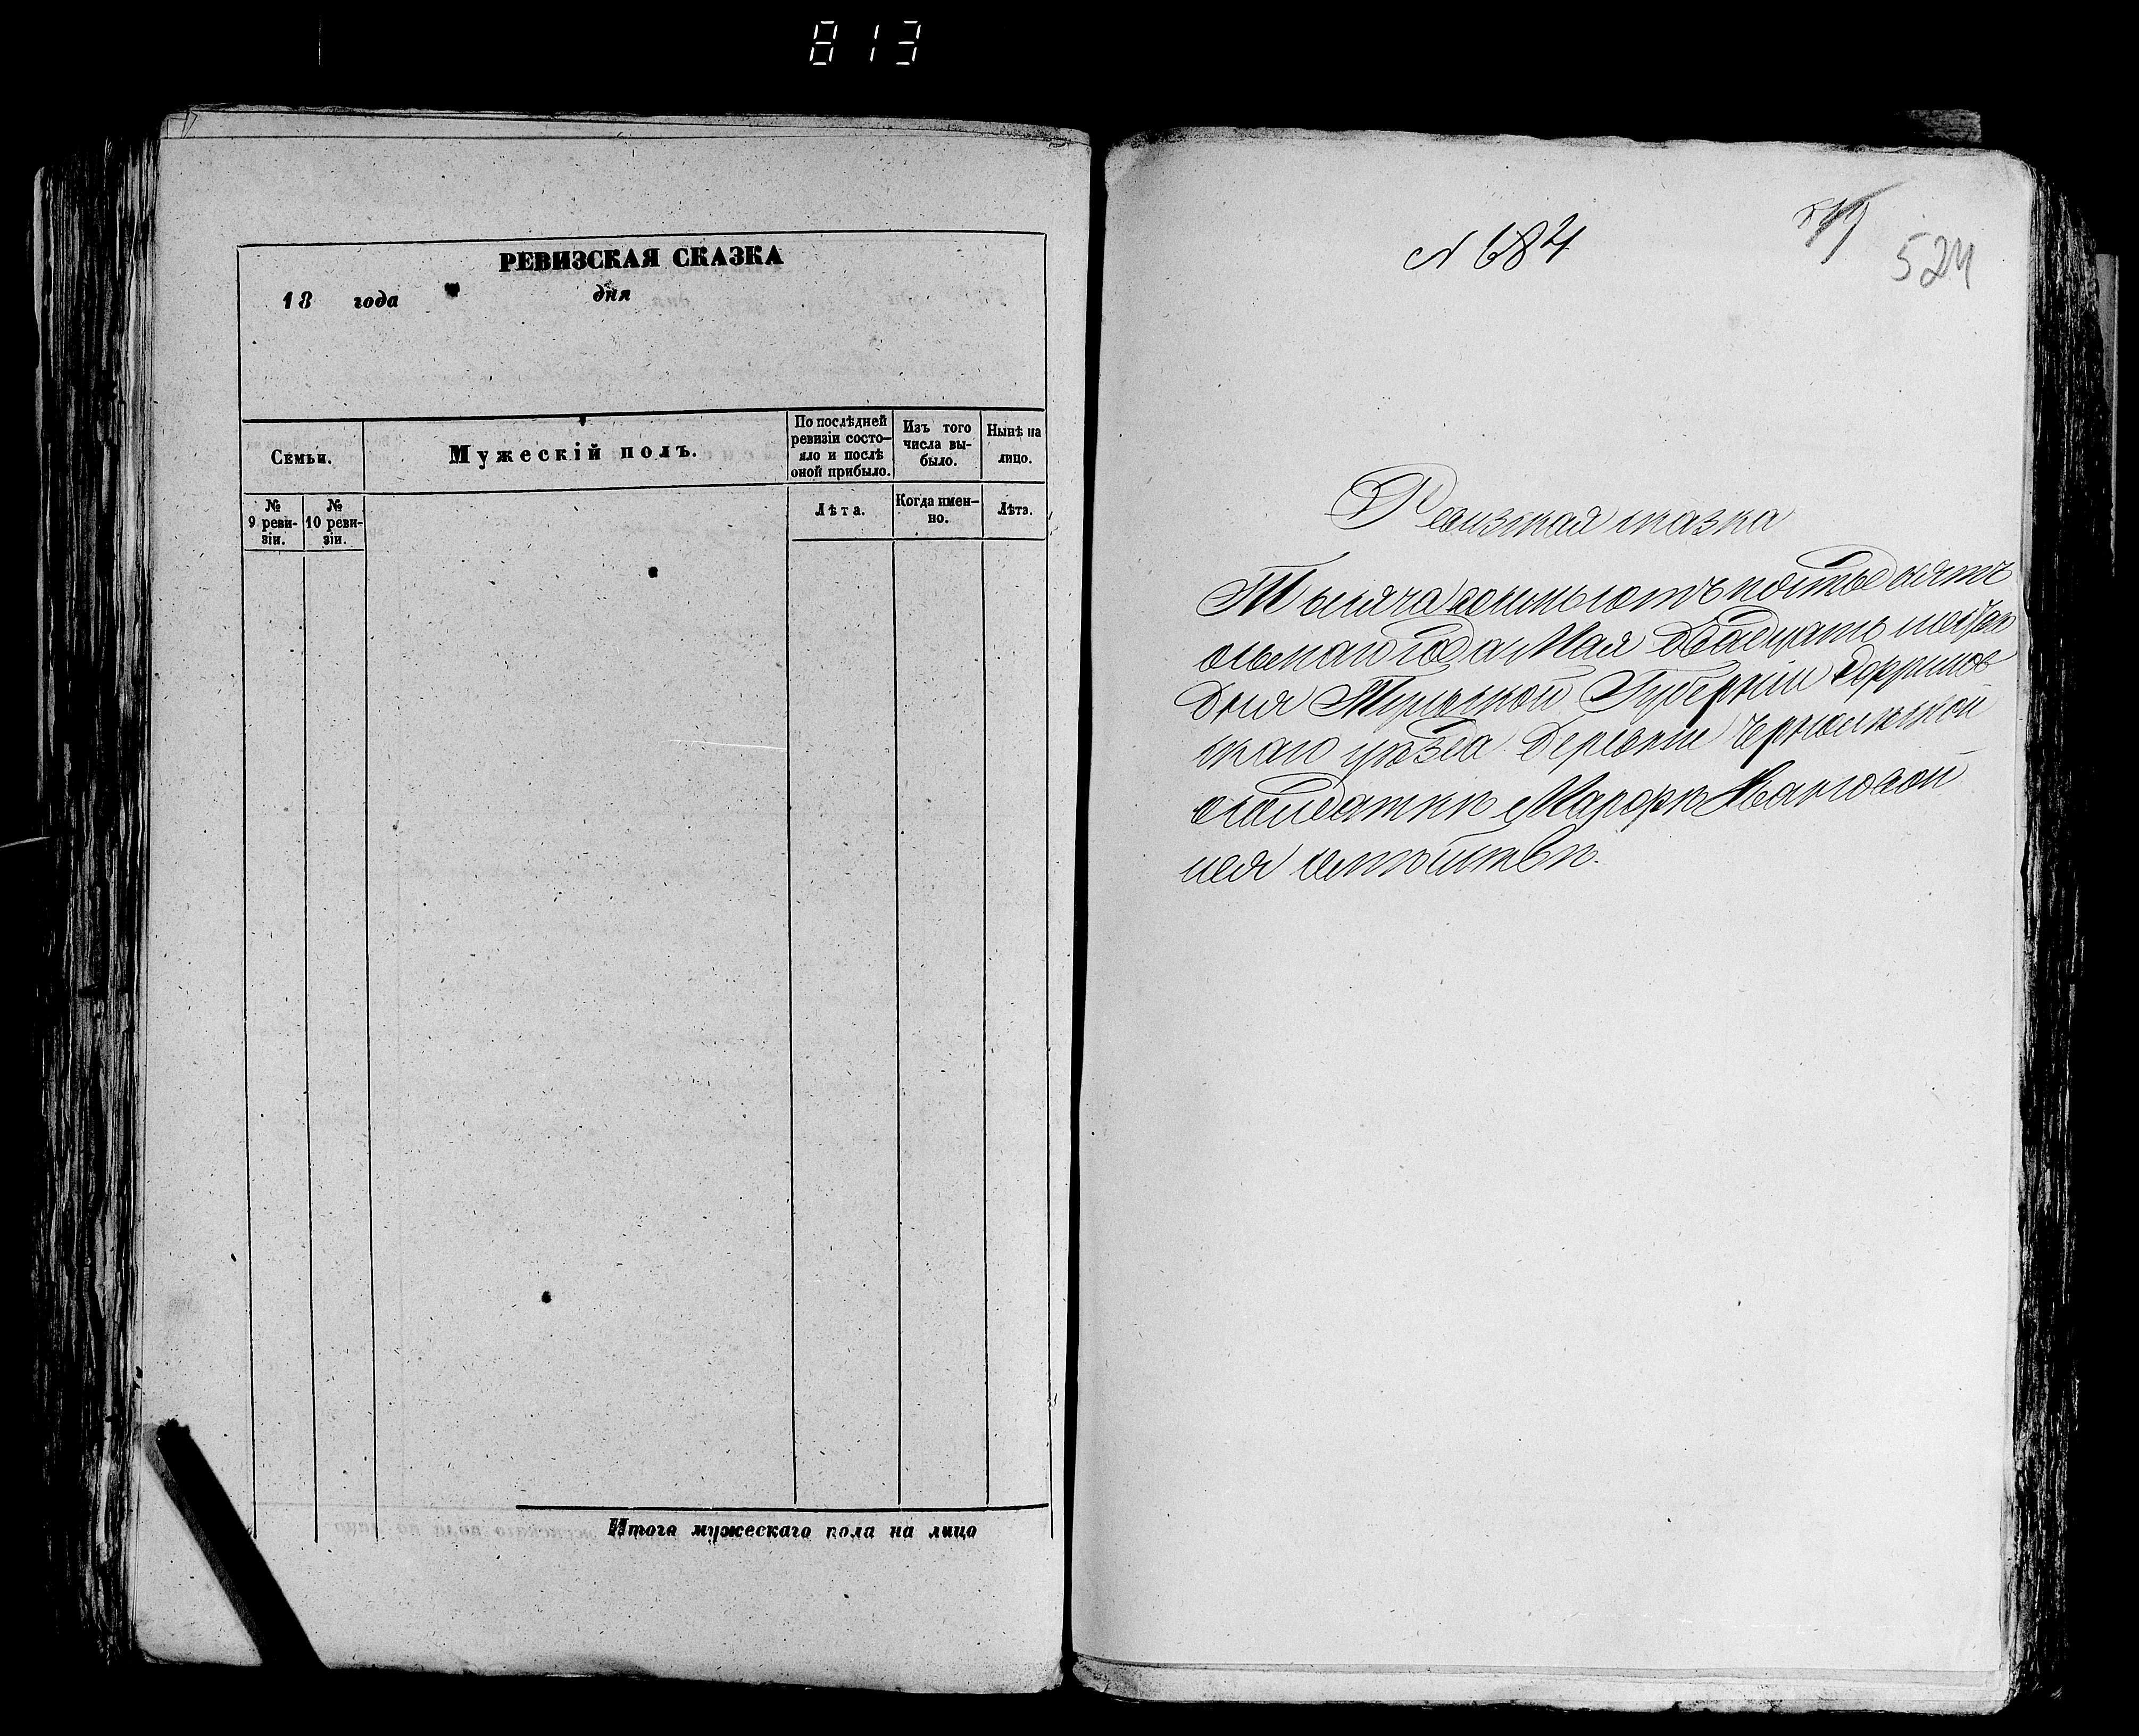 813
РЕВИЗСКАЯ СКАЗКА
18 года дня
Семьи.
Мужескій полъ.
По послѣдней
ревизіи состо-
яло и послѣ
оной прибыло.
Изъ того
числа вы-
было.
Нынѣ на
лицо.
№
9 реви-
зіи.
№
10 реви-
зіи.
Лѣта.
Когда имен-
но.
Лѣта.
Итого мужескаго пола на лицо
№ 684
524
Ревизская сказка
Тысяча восемьсотъ пятьдесятъ
осьмаго года Мая двадцать
дня Тульской Губерніи Ефремов
скаго уѣзда деревни
солдатки Ивановой
ея семѣйствѣ.